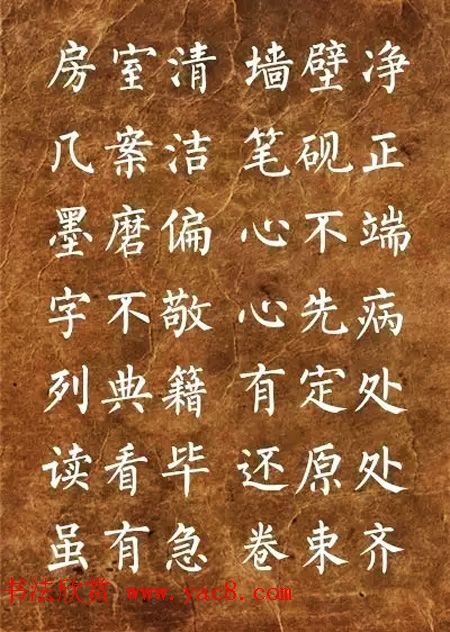 房室清 墙壁净
几案洁 笔砚正
墨磨偏 心不端
字不敬 心先病
列典籍 有定处
读看毕 还原处
虽有急 卷束齐
书法欣赏 www.yac8.com